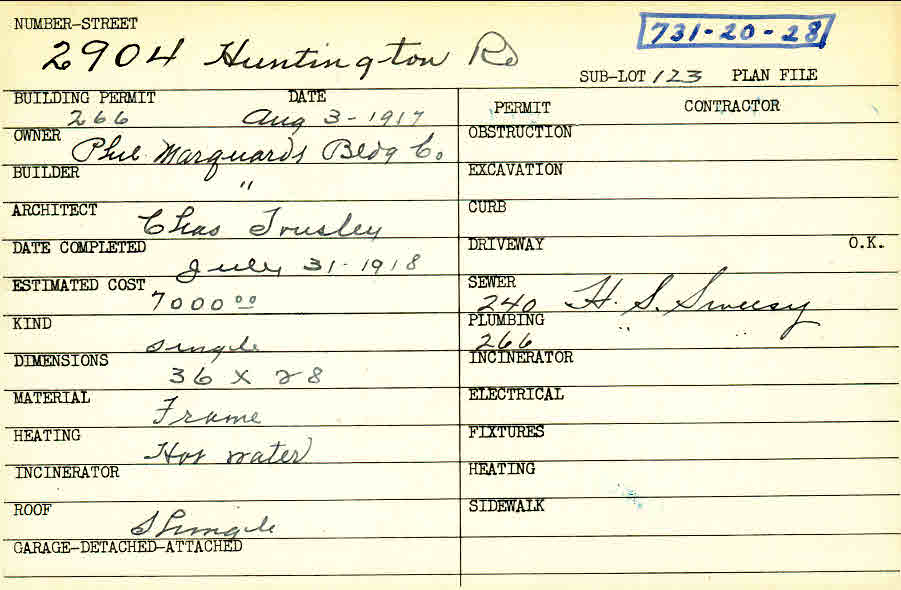 NUMBER-STREET
2904 Huntington Rd
731-20-28
SUB-LOT 123 PLAN FILE
BUILDING PERMIT DATE
266 Aug 3-1917
OWNER
Phil Marquards Bldg Co.
BUILDER
"
ARCHITECT
Chas
DATE COMPLETED
July 31-1918
ESTIMATED COST
7000 00
KIND
single
DIMENSIONS
36 x 28
MATERIAL
Frame
HEATING
Hot water
INCINERATOR
ROOF
Shingle
GARAGE-DETACHED-ATTACHED
PERMIT CONTRACTOR
OBSTRUCTION
EXCAVATION
CURB
DRIVEWAY O.K.
SEWER
240 H. S.
PLUMBING
266 " "
INCINERATOR
ELECTRICAL
FIXTURES
HEATING
SIDEWALK